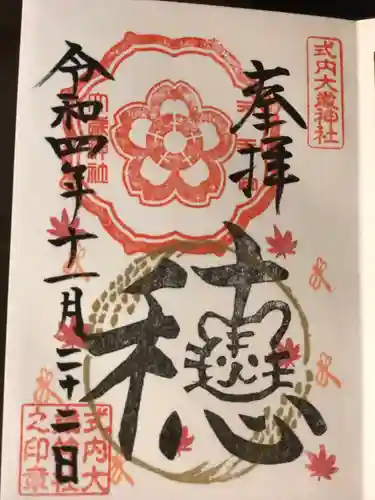 式内大歳神社
奉拝
穂
令和四年十一月二十二日
式内大
歳神社
之印章